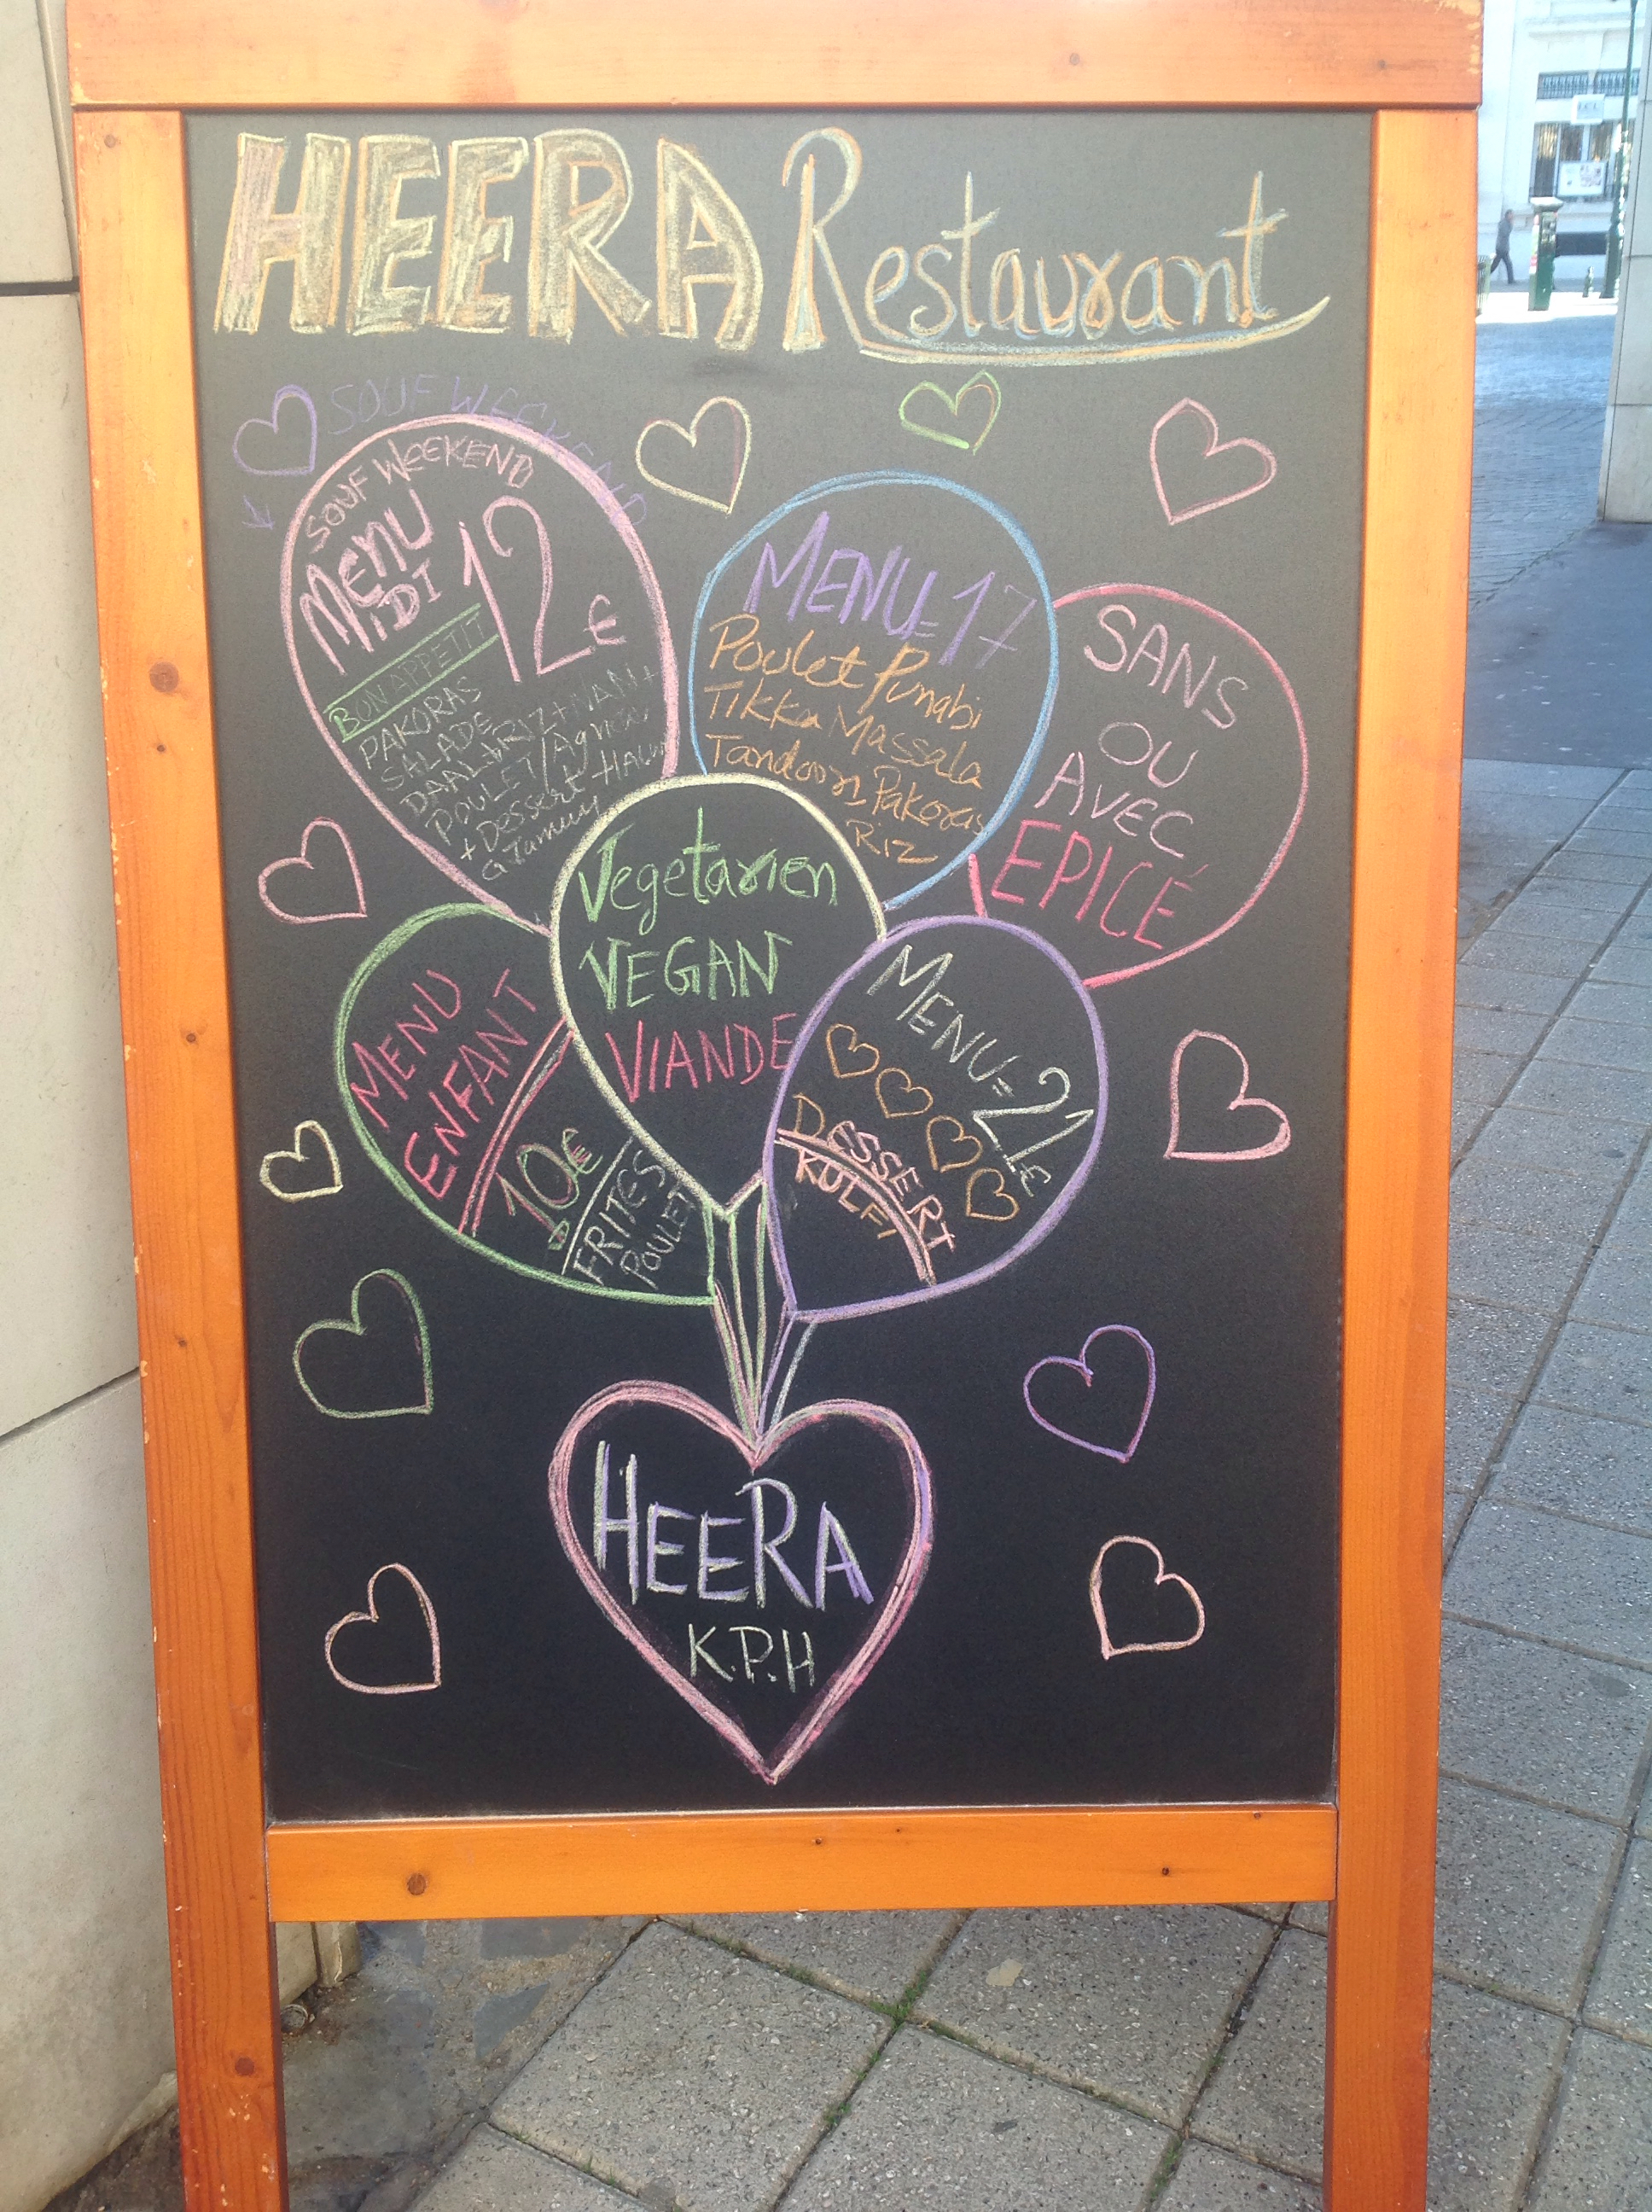 HEERA Restaurant
SOUF WEEKEND
SOUF WEEKEND
MENU
MIDI
12€
BON APPETIT
PAKORAS
SALADE
DAAL+RIZ+NAN+
POULET/Agneau
+Dessert
MENU=17
Poulet Punabi
Tikka Massala
Tandoori Pakoras
Riz
SANS
OU
AVEC
EPICÉ
Vegetarien
VEGAN
VIANDE
MENU
ENFANT
10€
FRITES
POULET
MENU=21€
DESSERT
KULFI
HEERA
K.P.H